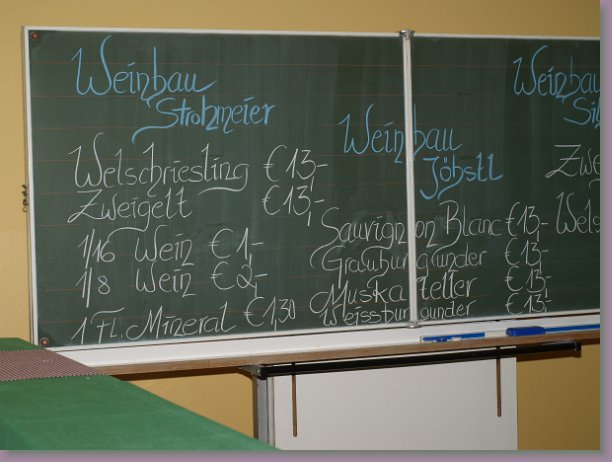 Weinbau
Strohmeier
Welschriesling €13,-
Zweigelt €13,-
1/16 Wein €1,-
1/8 Wein €2,-
1 Fl. Mineral €1,30
Weinbau
Jöbstl
Sauvignon Blanc €13,-
Grauburgunder €13,-
Muskateller €13,-
Weissburgunder €13,-
Weinbau